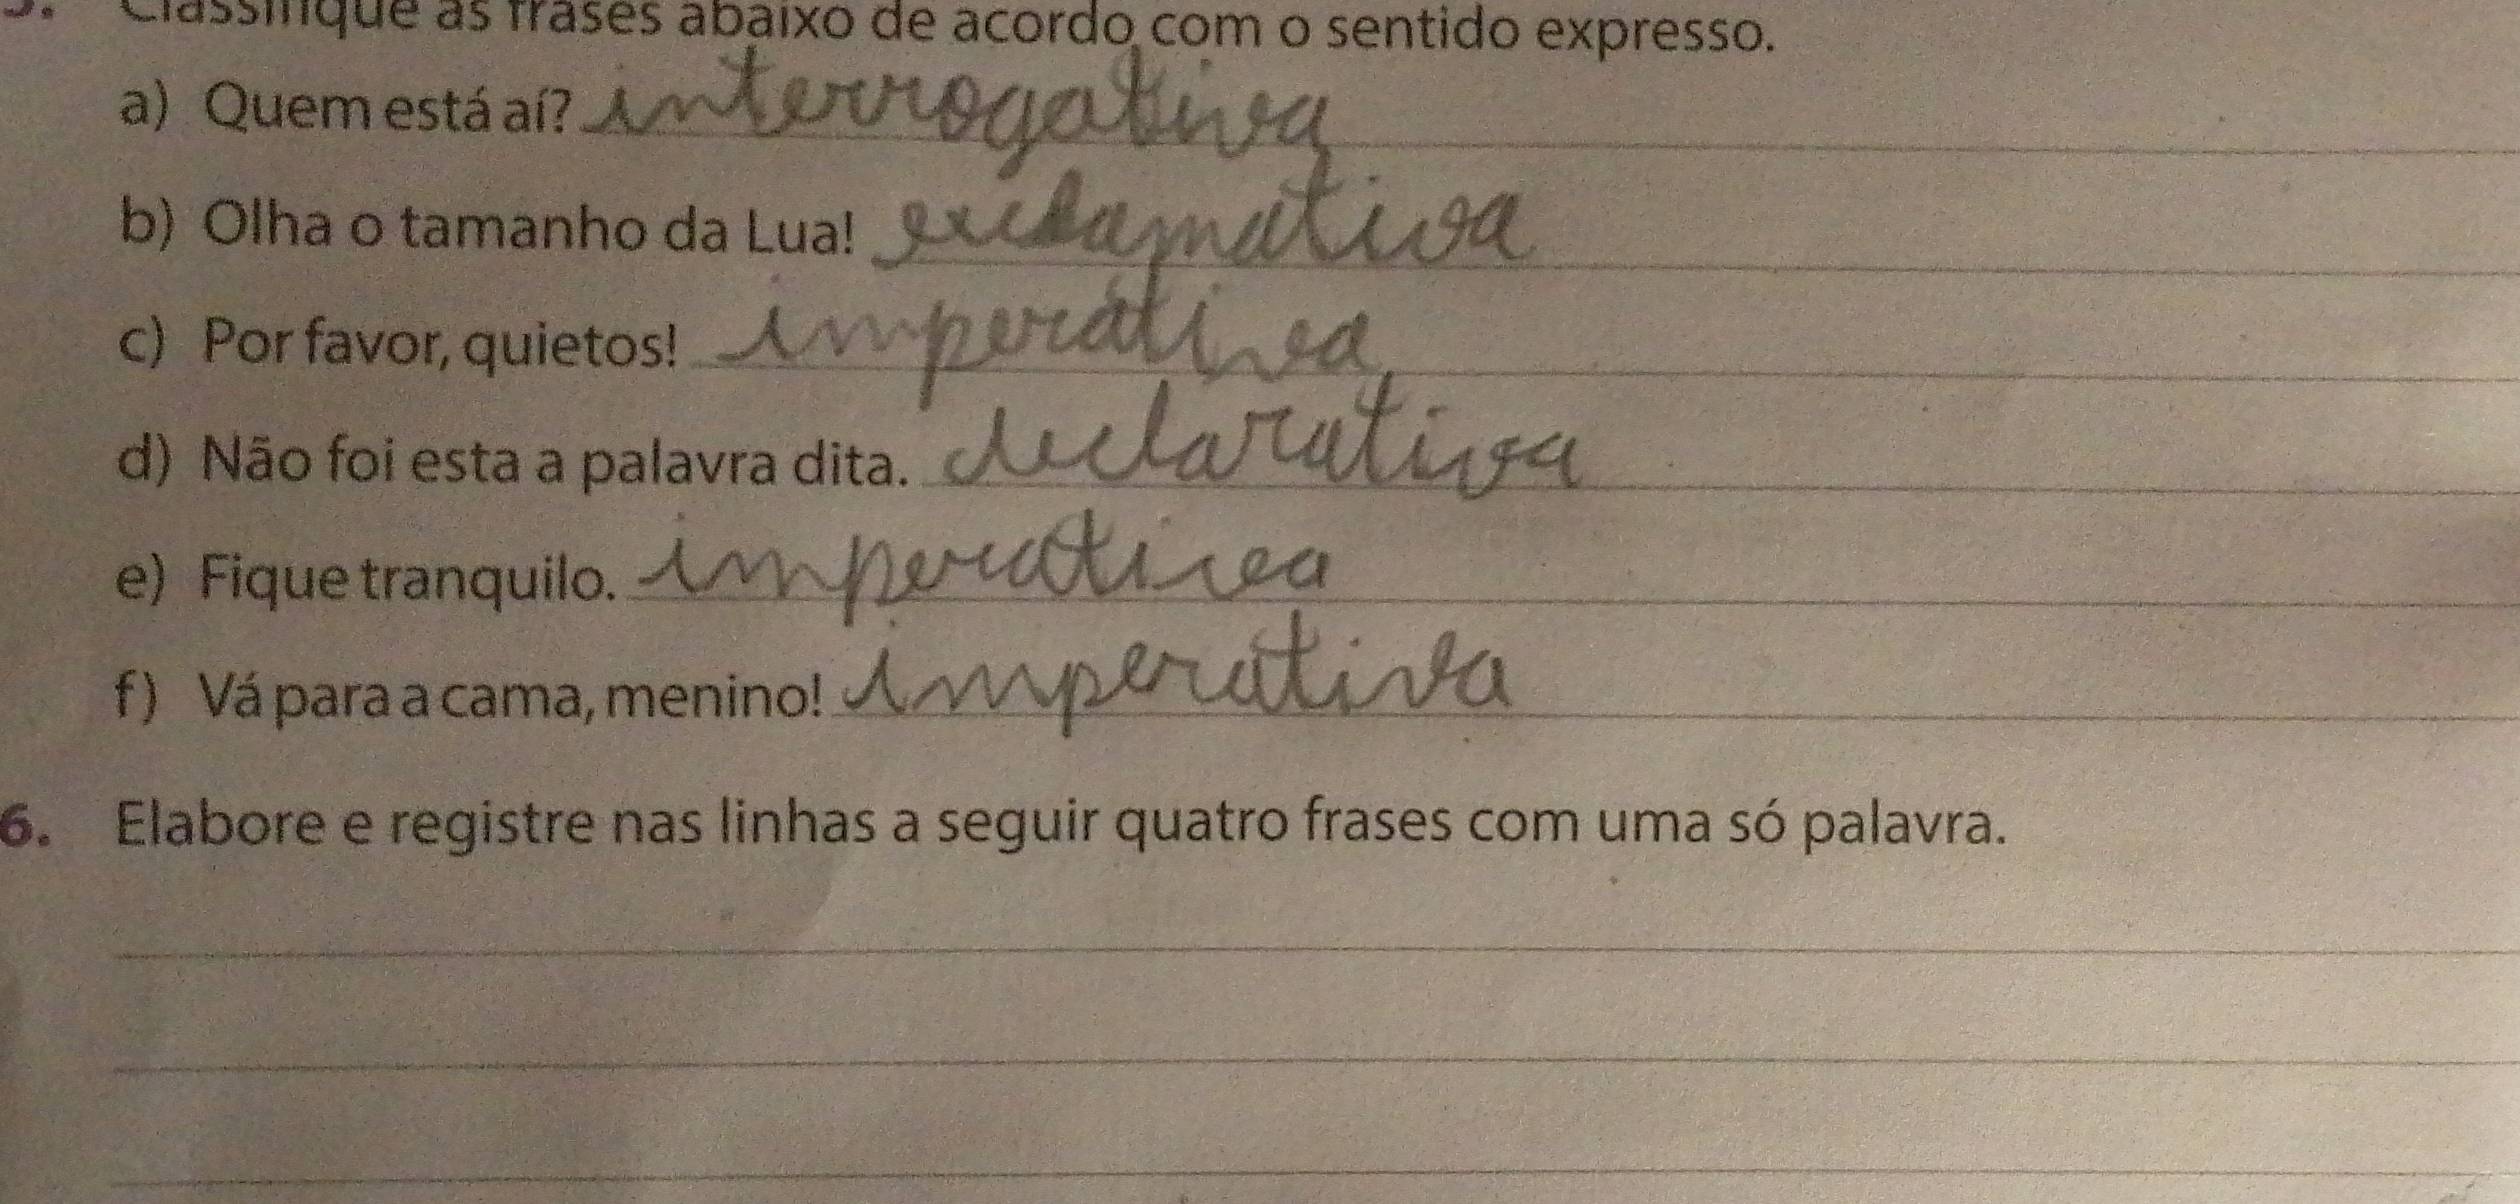 5. Classifique as frases abaixo de acordo com o sentido expresso.
a) Quem está aí? interrogativa
b) Olha o tamanho da Lua! exclamativa
c) Por favor, quietos! imperativa
d) Não foi esta a palavra dita. declarativa
e) Fique tranquilo. imperativa
f) Vá para a cama, menino! imperativa
6. Elabore e registre nas linhas a seguir quatro frases com uma só palavra.